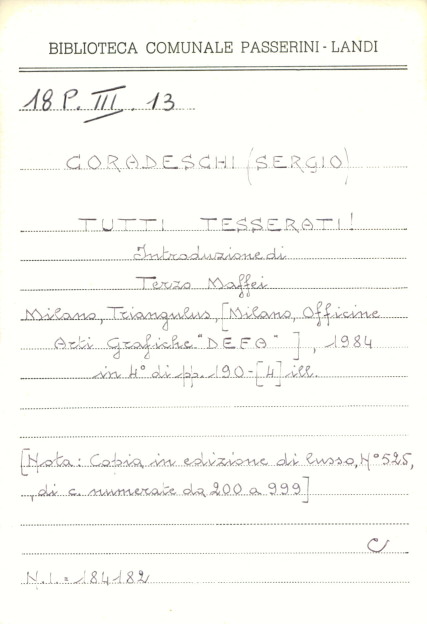 BIBLIOTECA COMUNALE PASSERINI - LANDI
18 P. III. 13
CORADESCHI (SERGIO)
TUTTI TESSERATI!
Introduzione di
Terzo Maffei
Milano, Triangulus, [Milano, Officine
Arti Grafiche "DEFA"], 1984
in 4° di pp. 190-[4] ill.
[Nota: Copia in edizione di lusso, N° 525,
, di c. numerate da 200 a 999]
C
N.I. = 184182